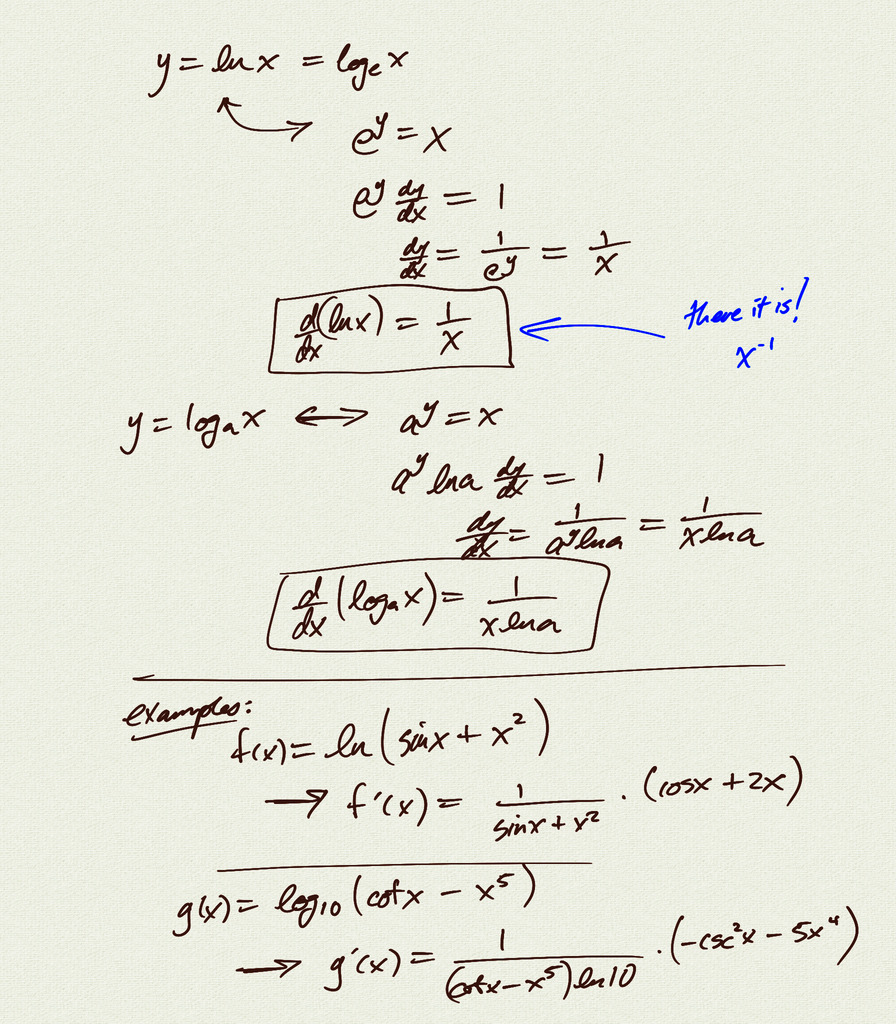 y = ln x = logₑ x
eʸ = x
eʸ dy/dx = 1
dy/dx = 1/eʸ = 1/x
d/dx (ln x) = 1/x
there it is!
x⁻¹
y = logₐ x ⟷ aʸ = x
aʸ ln a dy/dx = 1
dy/dx = 1/(aʸ ln a) = 1/(x ln a)
d/dx (logₐ x) = 1/(x ln a)
examples:
f(x) = ln(sin x + x²)
→ f'(x) = 1/(sin x + x²) · (cos x + 2x)
g(x) = log₁₀(cot x − x⁵)
→ g'(x) = 1/((cot x − x⁵) ln 10) · (−csc² x − 5x⁴)